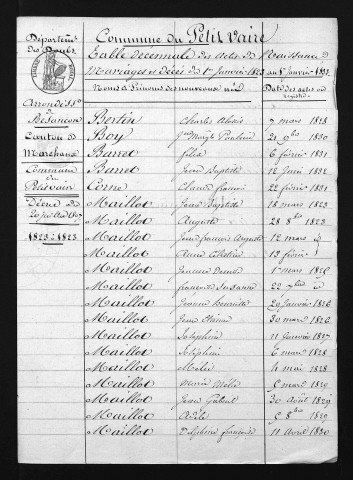 Commune du Petit Vaire
Département
des Doubs
Table Décennale des Actes de Naissance
Mariages et Décès du 1er Janvier 1823 au 1er Janvier 1833
Noms et Prénoms des nouveaux nés
Date des actes ou registre
TIMBRE ROYAL
Arrondisst
de
Besançon
Canton de
Marchaux
Commune
du
Petitvaire
Décret du
20 juillet 1807
1823 à 1833
Bertin Charles Alexis 7 mars 1828
Boy Pauline 21 9bre 1830
Barret Félix 6 février 1831
Barret Jean Baptiste 12 Juin 1832
Corne Claude françois 22 février 1831
Maillot Jean Baptiste 18 mars 1823
Maillot Auguste 28 8bre 1823
Maillot Jean françois Auguste 12 mars id
Maillot Anne Célestine 13 février
Maillot 17 mars 1825
Maillot françoise Suzanne 22 7bre id
Maillot Jeanne henriette 29 Janvier 1826
Maillot Jean Etienne 30 mars 1826
Maillot Joséphine 11 Janvier 1827
Maillot Joséphine 6 mars 1828
Maillot Mélie 4 mai 1828
Maillot Marie Mélie 5 mars 1829
Maillot Jean Gabriel 30 Août 1829
Maillot Adèle 5 8bre 1829
Maillot Delphine françoise 11 Avril 1830